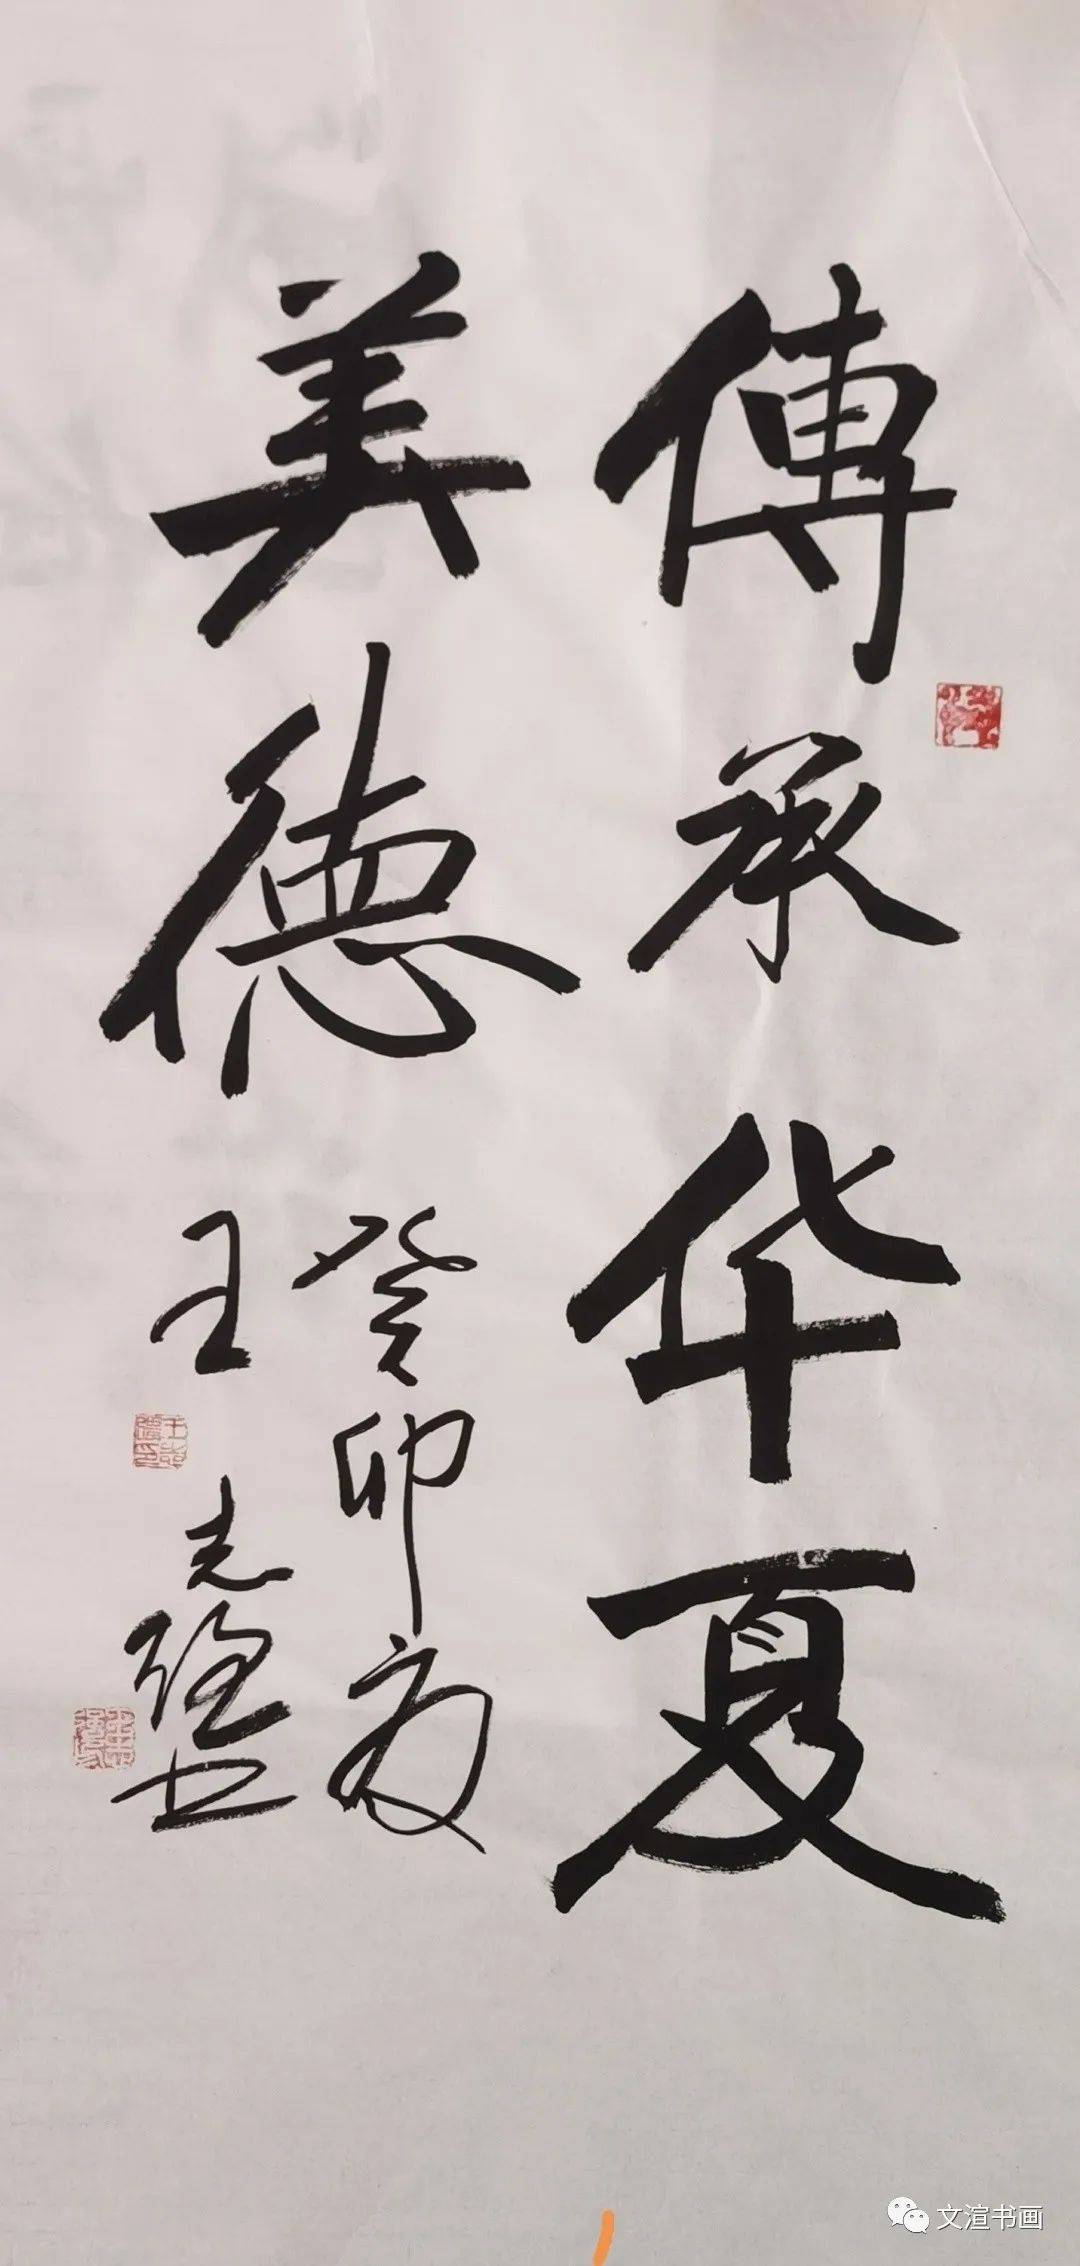 傳承华夏
美德
癸卯夏
王志强书
文渲书画